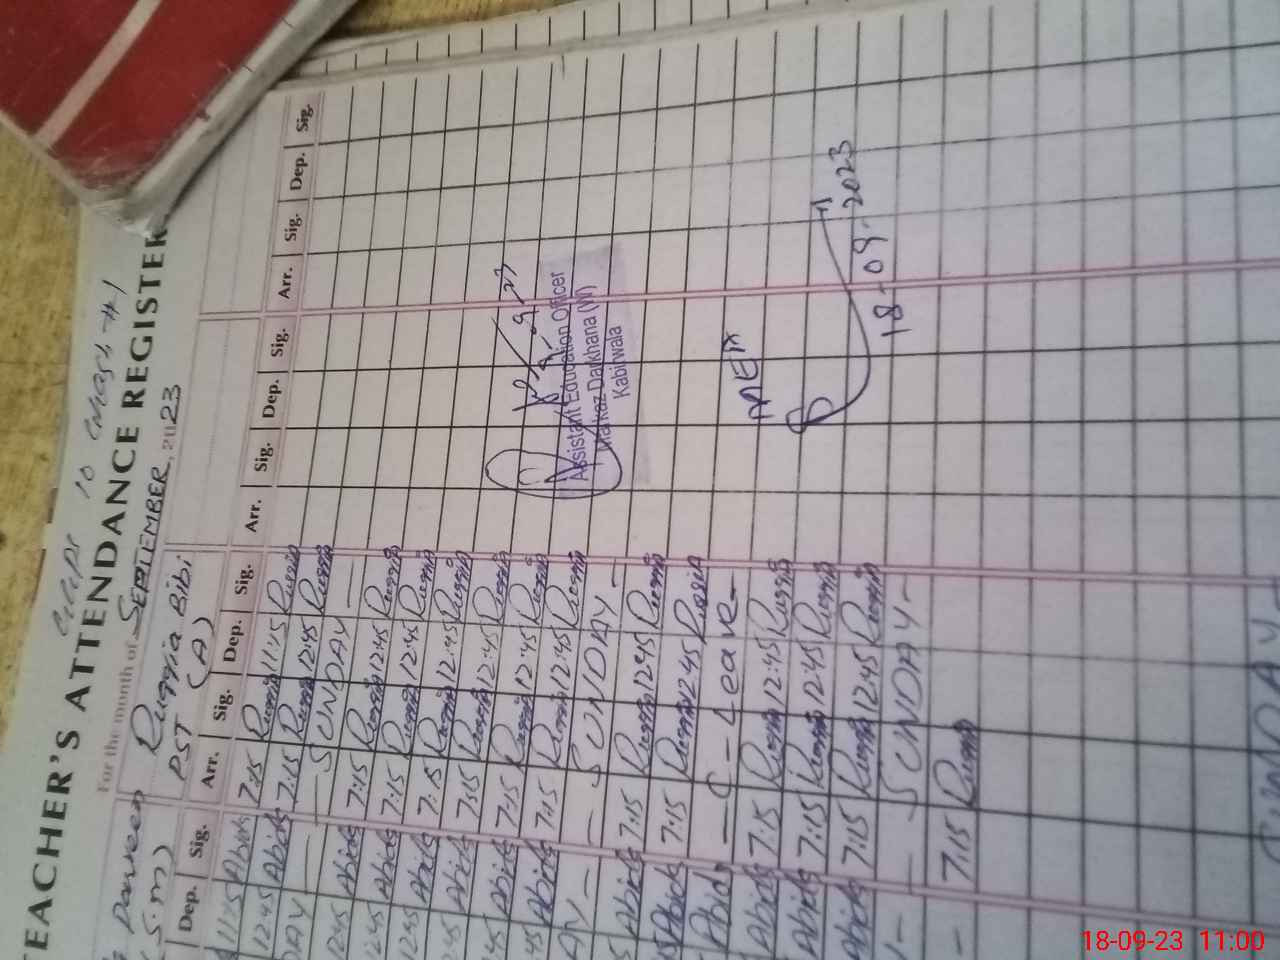 TEACHER'S ATTENDANCE REGISTER
For the month of SEPTEMBER, 2023
Parveen Ruqqia Bibi
PST (A)
Dep. Sig. Arr. Sig. Dep. Sig. Arr. Sig. Dep. Sig. Arr. Sig. Dep. Sig.
11:15 Abida 7:15 Ruqqia 11:15 Ruqqia
12:45 Abida 7:15 Ruqqia 12:45 Ruqqia
DAY — — SUNDAY —
12:45 Abida 7:15 Ruqqia 12:45 Ruqqia
12:45 Abida 7:15 Ruqqia 12:45 Ruqqia
12:45 Abida 7:15 Ruqqia 12:45 Ruqqia
:45 Abida 7:15 Ruqqia 12:45 Ruqqia
:45 Abida 7:15 Ruqqia 12:45 Ruqqia
45 Abida 7:15 Ruqqia 12:45 Ruqqia
AY — — SUNDAY —
5 Abida 7:15 Ruqqia 12:45 Ruqqia
45 Abida 7:15 Ruqqia 12:45 Ruqqia
Abida — C — Leave —
Abida 7:15 Ruqqia 12:45 Ruqqia
Abida 7:15 Ruqqia 12:45 Ruqqia
Abida 7:15 Ruqqia 12:45 Ruqqia
— — SUNDAY —
— 7:15 Ruqqia
Assistant Education Officer
Markaz Darkhana (W)
Kabirwala
18-09-2023
SUNDAY —
18-09-23 11:00